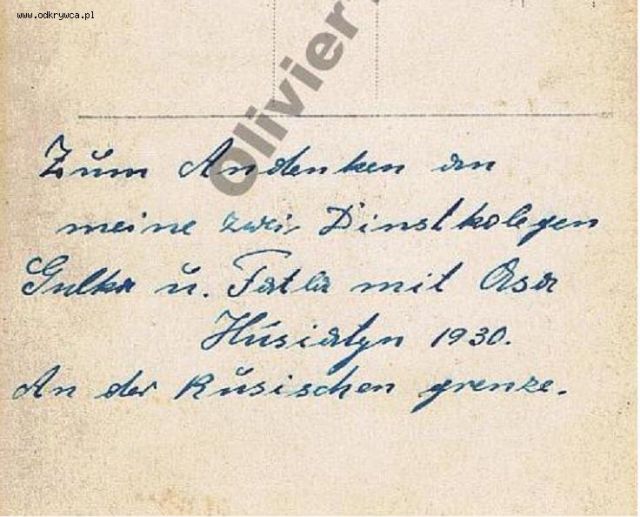 www.odkrywca.pl
Olivier
Zum Andenken an
meine zwei Dinstkolegen
Gulka u. Fatla mit Asa
Húsiatyn 1930.
An der Rusischen grenze.